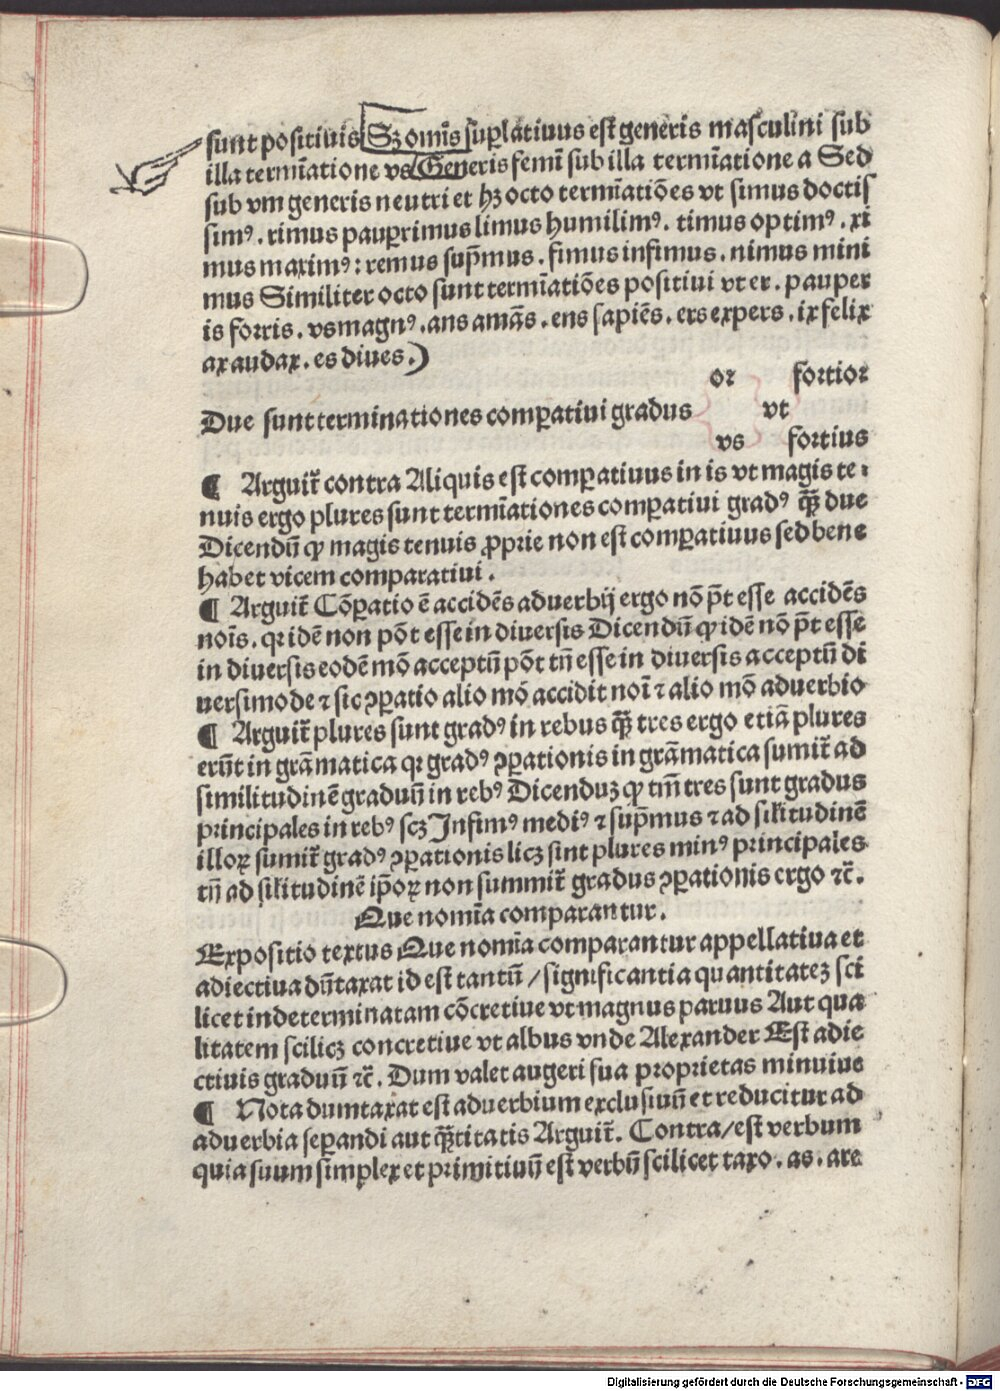 sunt positiuis Sꝫ om̄is suꝑlatiuus est generis masculini sub
illa termīatione vs Generis femī sub illa termīatione a Sed
sub vm generis neutri et hꝫ octo termīatiōes vt simus doctis
simꝰ . rimus pauꝑrimus limus humilimꝰ . timus optimꝰ . xi
mus maximꝰ : remus sup̄mus . fimus infimus . nimus mini
mus Similiter octo sunt termīatiōes positiui vt er . pauper
is fortis . vs magnꝰ . ans amās . ens sapiēs . ers expers . ix felix
ax audax . es diues .)
or fortior
Due sunt terminationes comꝑatiui gradus vt
vs fortius
¶ Arguit̄ contra Aliquis est comꝑatiuus in is vt magis te⸗
nuis ergo plures sunt termīationes comꝑatiui gradꝰ qꝫ̄ due
Dicendū ꝙ magis tenuis ꝓprie non est comꝑatiuus sed bene
habet vicem comparatiui .
¶ Arguit̄ Cōꝑatio ē accidēs aduerbij ergo nō p̄t esse accidēs
noīs . qꝛ idē non pōt esse in diuersis Dicendū ꝙ idē nō p̄t esse
in diuersis eodē mō acceptū pōt tn̄ esse in diuersis acceptū di
uersimode ⁊ sic ꝯꝑatio alio mō accidit noī ⁊ alio mō aduerbio
¶ Arguit̄ plures sunt gradꝰ in rebus qꝫ̄ tres ergo etiā plures
erūt in grāmatica qꝛ gradꝰ ꝯꝑationis in grāmatica sumit̄ ad
similitudinē graduū in rebꝰ Dicenduꝫ ꝙ tm̄ tres sunt gradus
principales in rebꝰ scꝫ Infimꝰ mediꝰ ⁊ sup̄mus ⁊ ad sil̄itudinē
illoꝝ sumit̄ gradꝰ ꝯꝑationis licꝫ sint plures minꝰ principales
tn̄ ad sil̄itudinē ip̄oꝝ non summit̄ gradus ꝯꝑationis ergo ⁊c̄.
Que nomīa comparantur .
Expositio textus Que nomīa comparantur appellatiua et
adiectiua dūtaxat id est tantū / significantia quantitateꝫ sci
licet indeterminatam cōcretiue vt magnus paruus Aut qua
litatem scilicꝫ concretiue vt albus vnde Alexander Est adie
ctiuis graduū ⁊c̄. Dum valet augeri sua proprietas minuiue
¶ Nota dumtaxat est aduerbium exclusiuū et reducitur ad
aduerbia seꝑandi aut qꝫ̄titatis Arguit̄. Contra / est verbum
quia suum simplex et primitiuū est verbū scilicet taxo . as . are
Digitalisierung gefördert durch die Deutsche Forschungsgemeinschaft - DFG